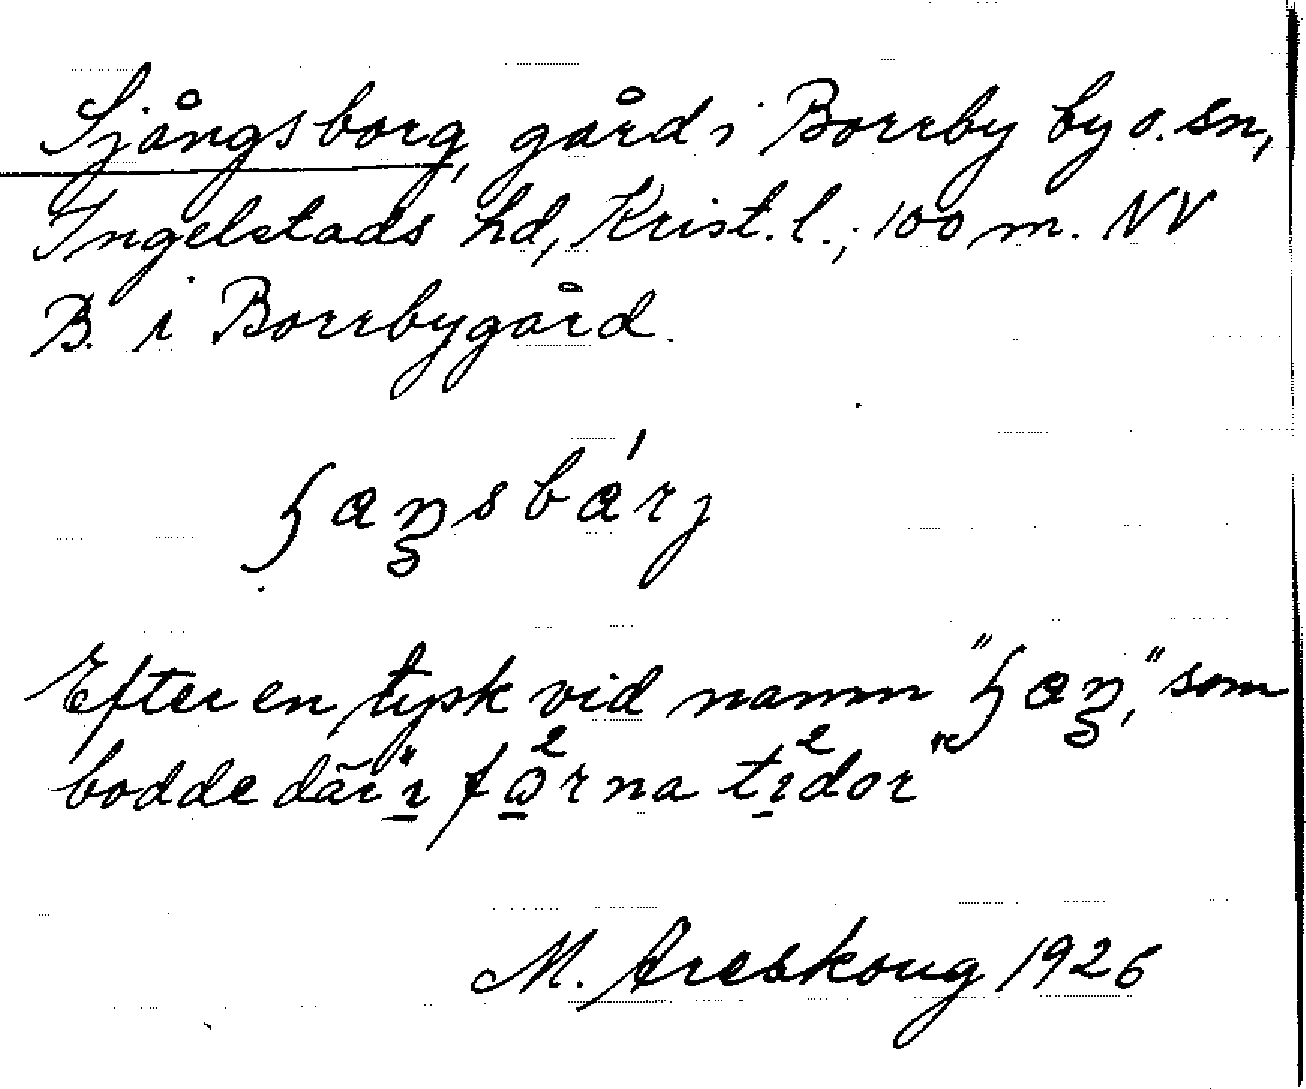 Sjångsborg, gård i Borrby by o. sn,
Ingelstads hd, Krist. l.; 100 m. NV
B. i Borrbygård.
ʃæŋsbárj
Efter en tysk vid namn "ʃæŋ," som
bodde där "i fǫrna tidor"
M. Areskoug 1926